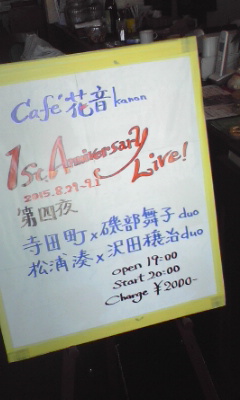 Café 花音 kanon
1st Anniversary
Live!
2015.8.29~9.1
第四夜
寺田町×磯部舞子duo
松浦湊×沢田穣治duo
open 19:00
Start 20:00
Charge ¥2000-